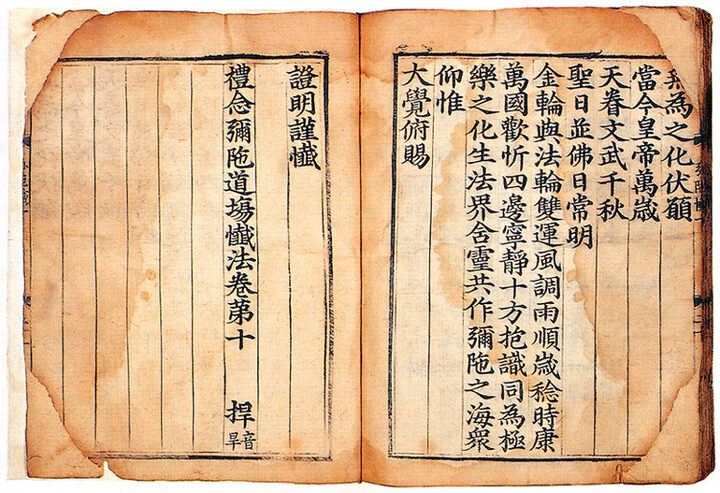 無為之化伏願
當今皇帝萬歲
天眷文武千秋
聖日並佛日常明
金輪與法輪雙運風調雨順歲稔時康
萬國歡忻四邊寧靜十方抱識同為極
樂之化生法界含靈共作彌陁之海衆
仰惟
大覺俯賜
證明謹懺
禮念彌陁道塲懺法卷第十
捍音旱